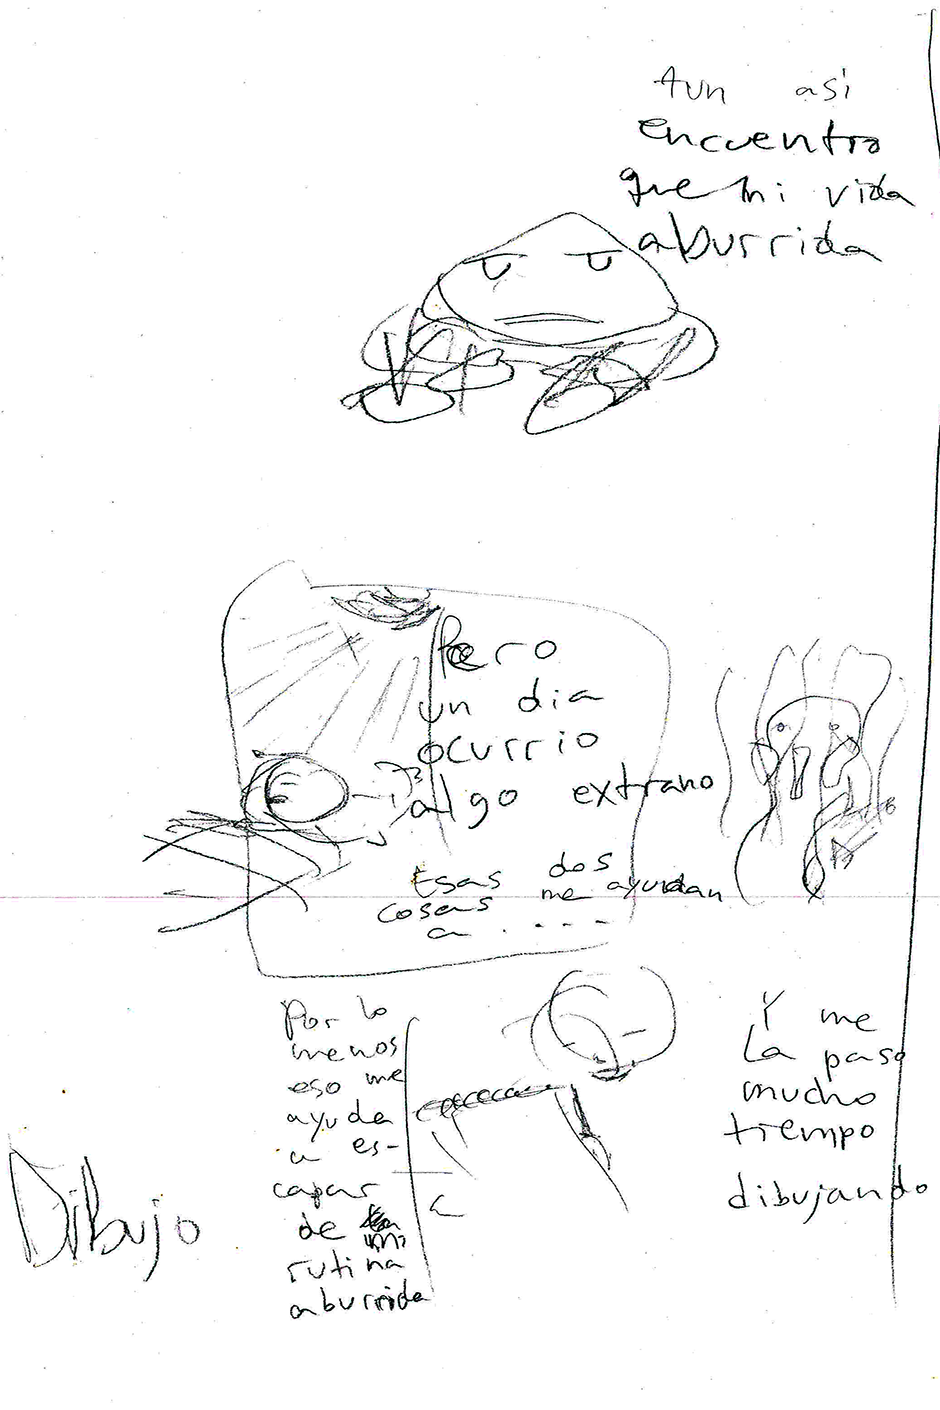 Aun asi
encuentro
que mi vida
aburrida
Pero
un dia
ocurrio
algo extrano
Esas dos
cosas me ayudan
a . . . .
Por lo
menos
eso me
ayuda
a es-
capar
de mi
rutina
aburrida
Y me
la paso
mucho
tiempo
dibujando
Dibujo